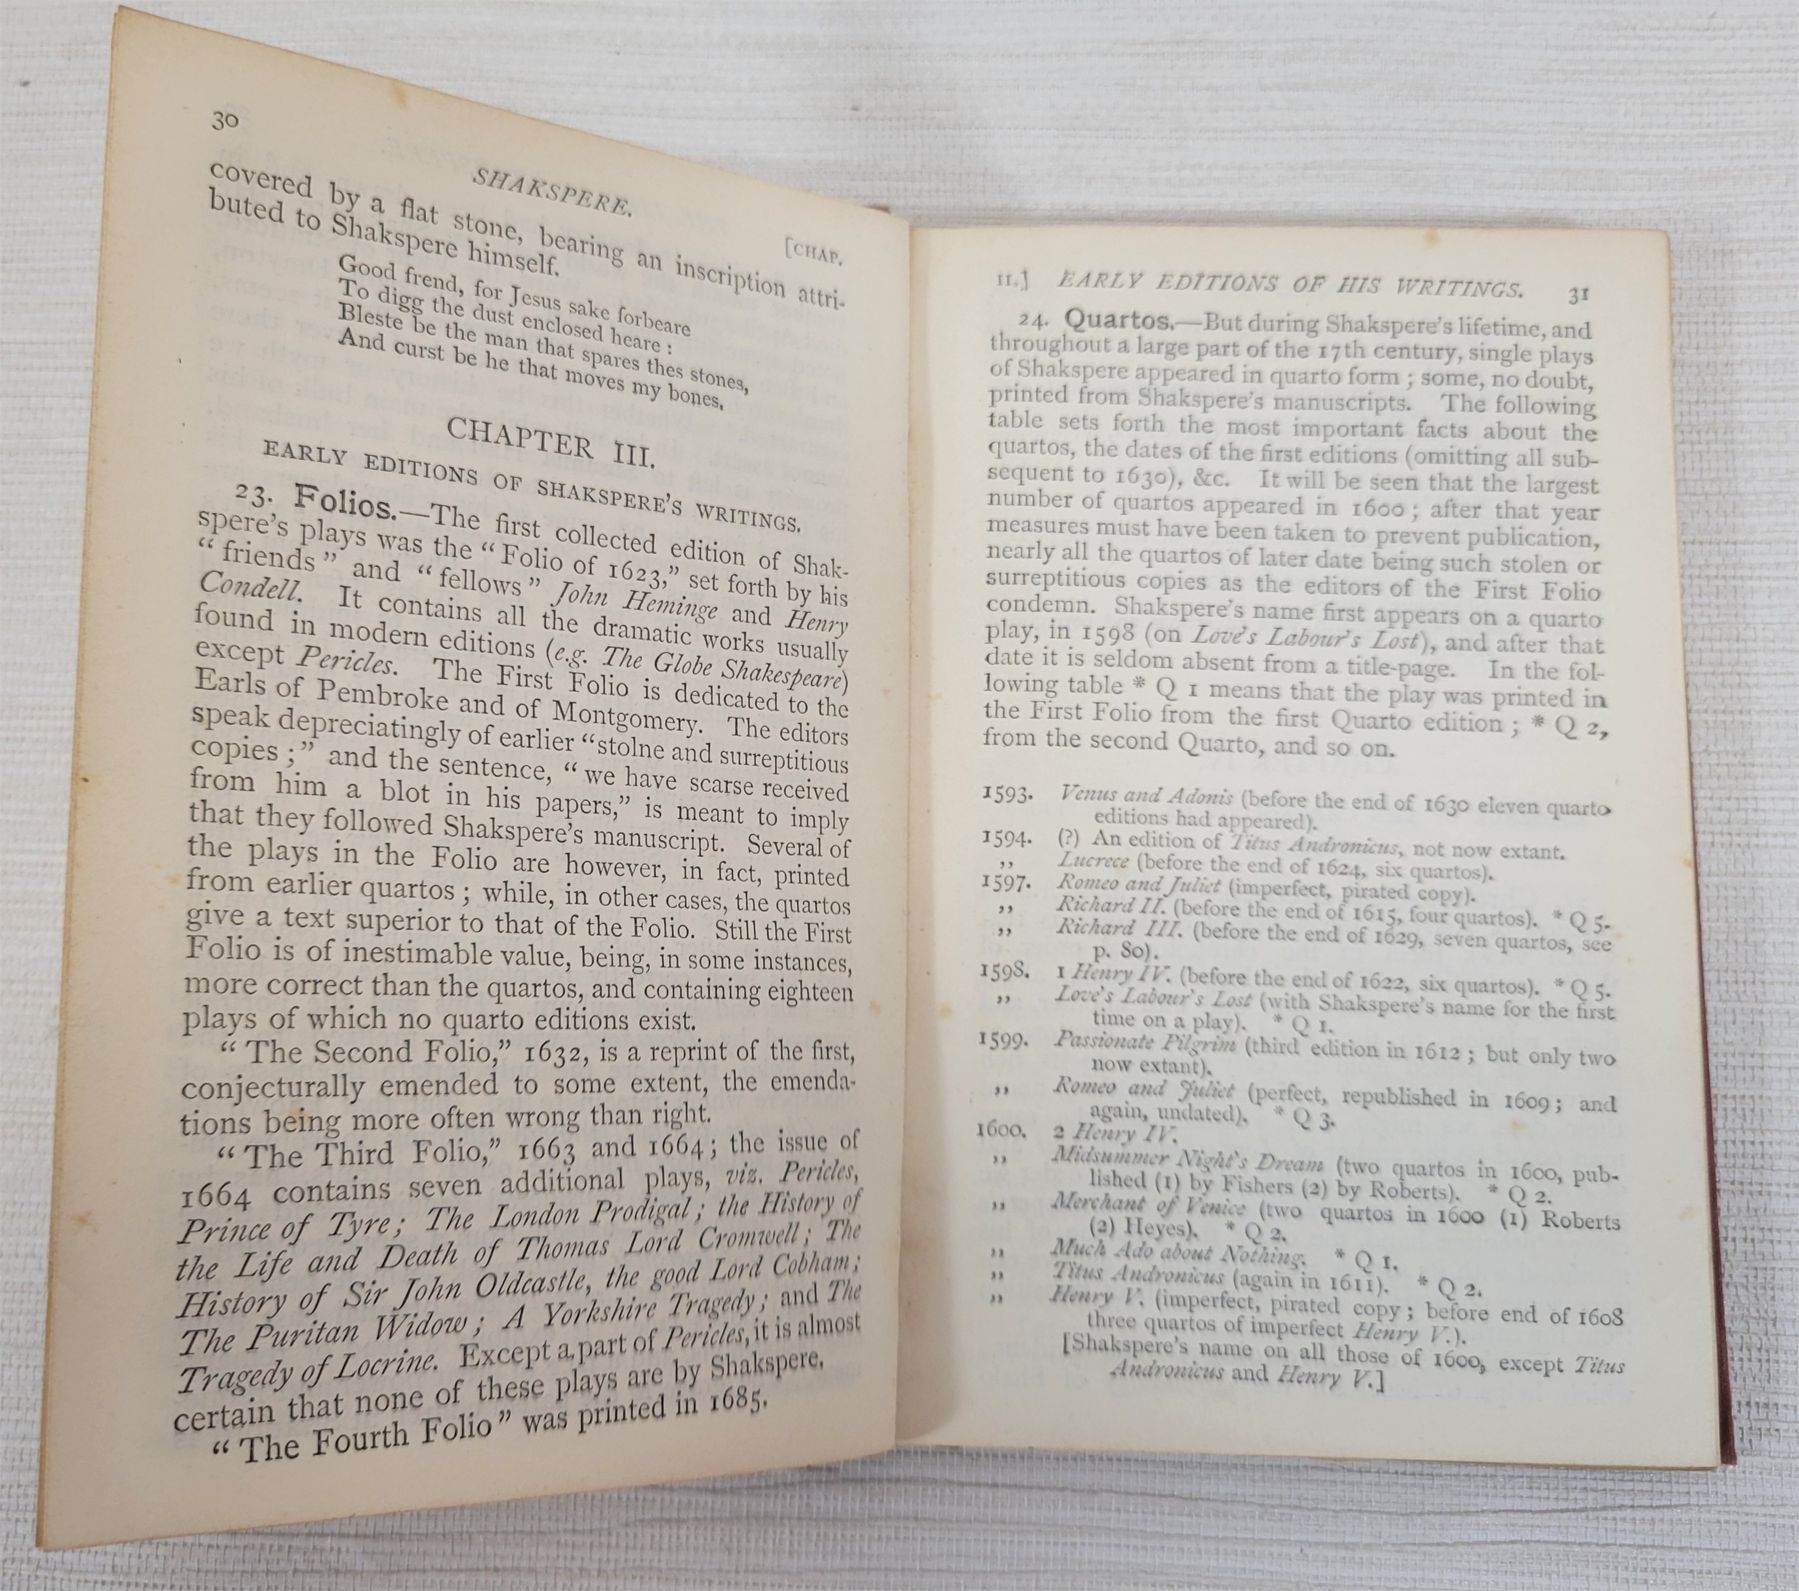 30
SHAKSPERE.
[CHAP.
covered by a flat stone, bearing an inscription attri-
buted to Shakspere himself.
Good frend, for Jesus sake forbeare
To digg the dust enclosed heare :
Bleste be the man that spares thes stones,
And curst be he that moves my bones.
CHAPTER III.
EARLY EDITIONS OF SHAKSPERE'S WRITINGS.
23. Folios.—The first collected edition of Shak-
spere's plays was the “Folio of 1623,” set forth by his
“friends” and “fellows” John Heminge and Henry
Condell. It contains all the dramatic works usually
found in modern editions (e.g. The Globe Shakespeare)
except Pericles. The First Folio is dedicated to the
Earls of Pembroke and of Montgomery. The editors
speak depreciatingly of earlier “stolne and surreptitious
copies ;” and the sentence, “we have scarse received
from him a blot in his papers,” is meant to imply
that they followed Shakspere's manuscript. Several of
the plays in the Folio are however, in fact, printed
from earlier quartos ; while, in other cases, the quartos
give a text superior to that of the Folio. Still the First
Folio is of inestimable value, being, in some instances,
more correct than the quartos, and containing eighteen
plays of which no quarto editions exist.
“The Second Folio,” 1632, is a reprint of the first,
conjecturally emended to some extent, the emenda-
tions being more often wrong than right.
“The Third Folio,” 1663 and 1664 ; the issue of
1664 contains seven additional plays, viz. Pericles,
Prince of Tyre ; The London Prodigal ; the History of
the Life and Death of Thomas Lord Cromwell ; The
History of Sir John Oldcastle, the good Lord Cobham ;
The Puritan Widow ; A Yorkshire Tragedy ; and The
Tragedy of Locrine. Except a part of Pericles, it is almost
certain that none of these plays are by Shakspere.
“The Fourth Folio” was printed in 1685.
II.] EARLY EDITIONS OF HIS WRITINGS. 31
24. Quartos.—But during Shakspere's lifetime, and
throughout a large part of the 17th century, single plays
of Shakspere appeared in quarto form ; some, no doubt,
printed from Shakspere's manuscripts. The following
table sets forth the most important facts about the
quartos, the dates of the first editions (omitting all sub-
sequent to 1630), &c. It will be seen that the largest
number of quartos appeared in 1600 ; after that year
measures must have been taken to prevent publication,
nearly all the quartos of later date being such stolen or
surreptitious copies as the editors of the First Folio
condemn. Shakspere's name first appears on a quarto
play, in 1598 (on Love's Labour's Lost), and after that
date it is seldom absent from a title-page. In the fol-
lowing table * Q 1 means that the play was printed in
the First Folio from the first Quarto edition ; * Q 2,
from the second Quarto, and so on.
1593. Venus and Adonis (before the end of 1630 eleven quarto
editions had appeared).
1594. (?) An edition of Titus Andronicus, not now extant.
,, Lucrece (before the end of 1624, six quartos).
1597. Romeo and Juliet (imperfect, pirated copy).
,, Richard II. (before the end of 1615, four quartos). * Q 5.
,, Richard III. (before the end of 1629, seven quartos, see
p. 80).
1598. 1 Henry IV. (before the end of 1622, six quartos). * Q 5.
,, Love's Labour's Lost (with Shakspere's name for the first
time on a play). * Q 1.
1599. Passionate Pilgrim (third edition in 1612 ; but only two
now extant).
,, Romeo and Juliet (perfect, republished in 1609 ; and
again, undated). * Q 3.
1600. 2 Henry IV.
,, Midsummer Night's Dream (two quartos in 1600, pub-
lished (1) by Fishers (2) by Roberts). * Q 2.
,, Merchant of Venice (two quartos in 1600 (1) Roberts
(2) Heyes). * Q 2.
,, Much Ado about Nothing. * Q 1.
,, Titus Andronicus (again in 1611). * Q 2.
,, Henry V. (imperfect, pirated copy ; before end of 1608
three quartos of imperfect Henry V.).
[Shakspere's name on all those of 1600, except Titus
Andronicus and Henry V.]